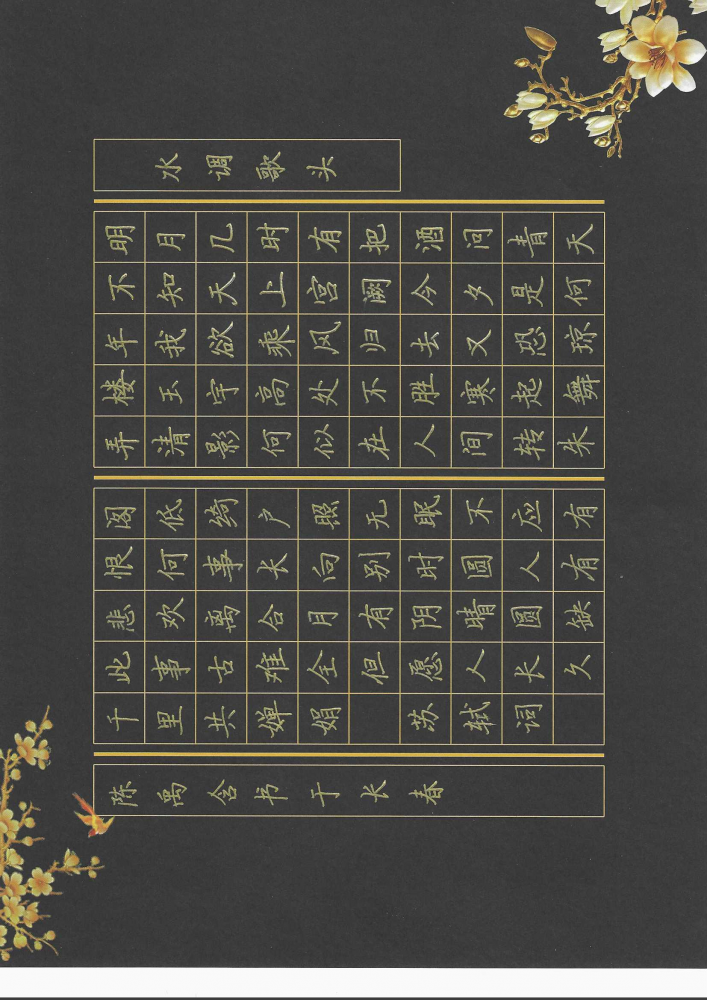 水调歌头
明月几时有把酒问青天
不知天上宫阙今夕是何
年我欲乘风归去又恐琼
楼玉宇高处不胜寒起舞
弄清影何似在人间转朱
阁低绮户照无眠不应有
恨何事长向别时圆人有
悲欢离合月有阴晴圆缺
此事古难全但愿人长久
千里共婵娟 苏轼词
陈禹含书于长春